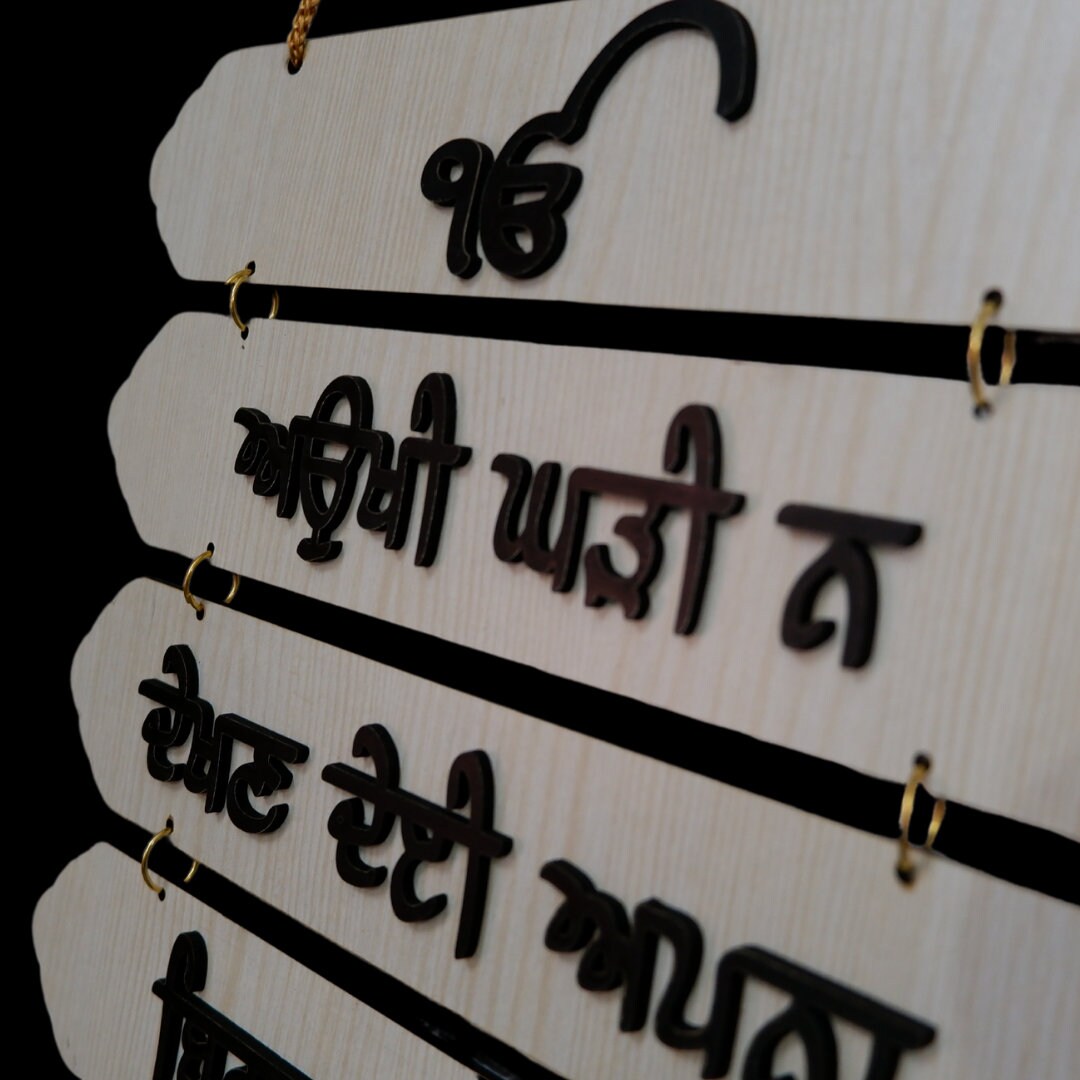 ੴ
ਅਉਖੀ ਘੜੀ ਨ
ਦੇਖਣ ਦੇਈ ਅਪਨਾ